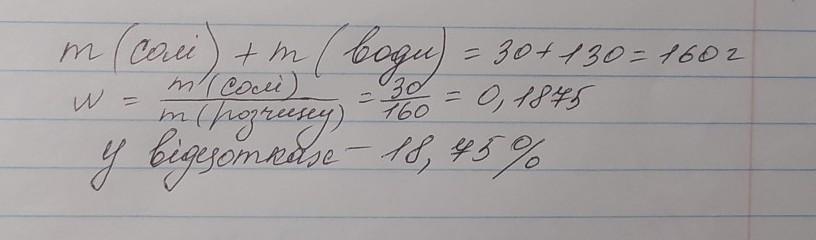 m (солі) + m (води) = 30 + 130 = 160 г
w = m (солі) / m (розчину) = 30 / 160 = 0,1875
У відсотках – 18,75 %